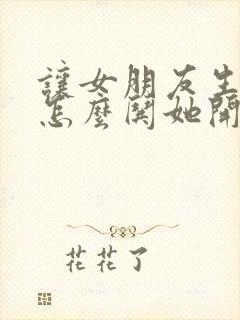 讓女朋友生
怎麼鬨她開
花花了